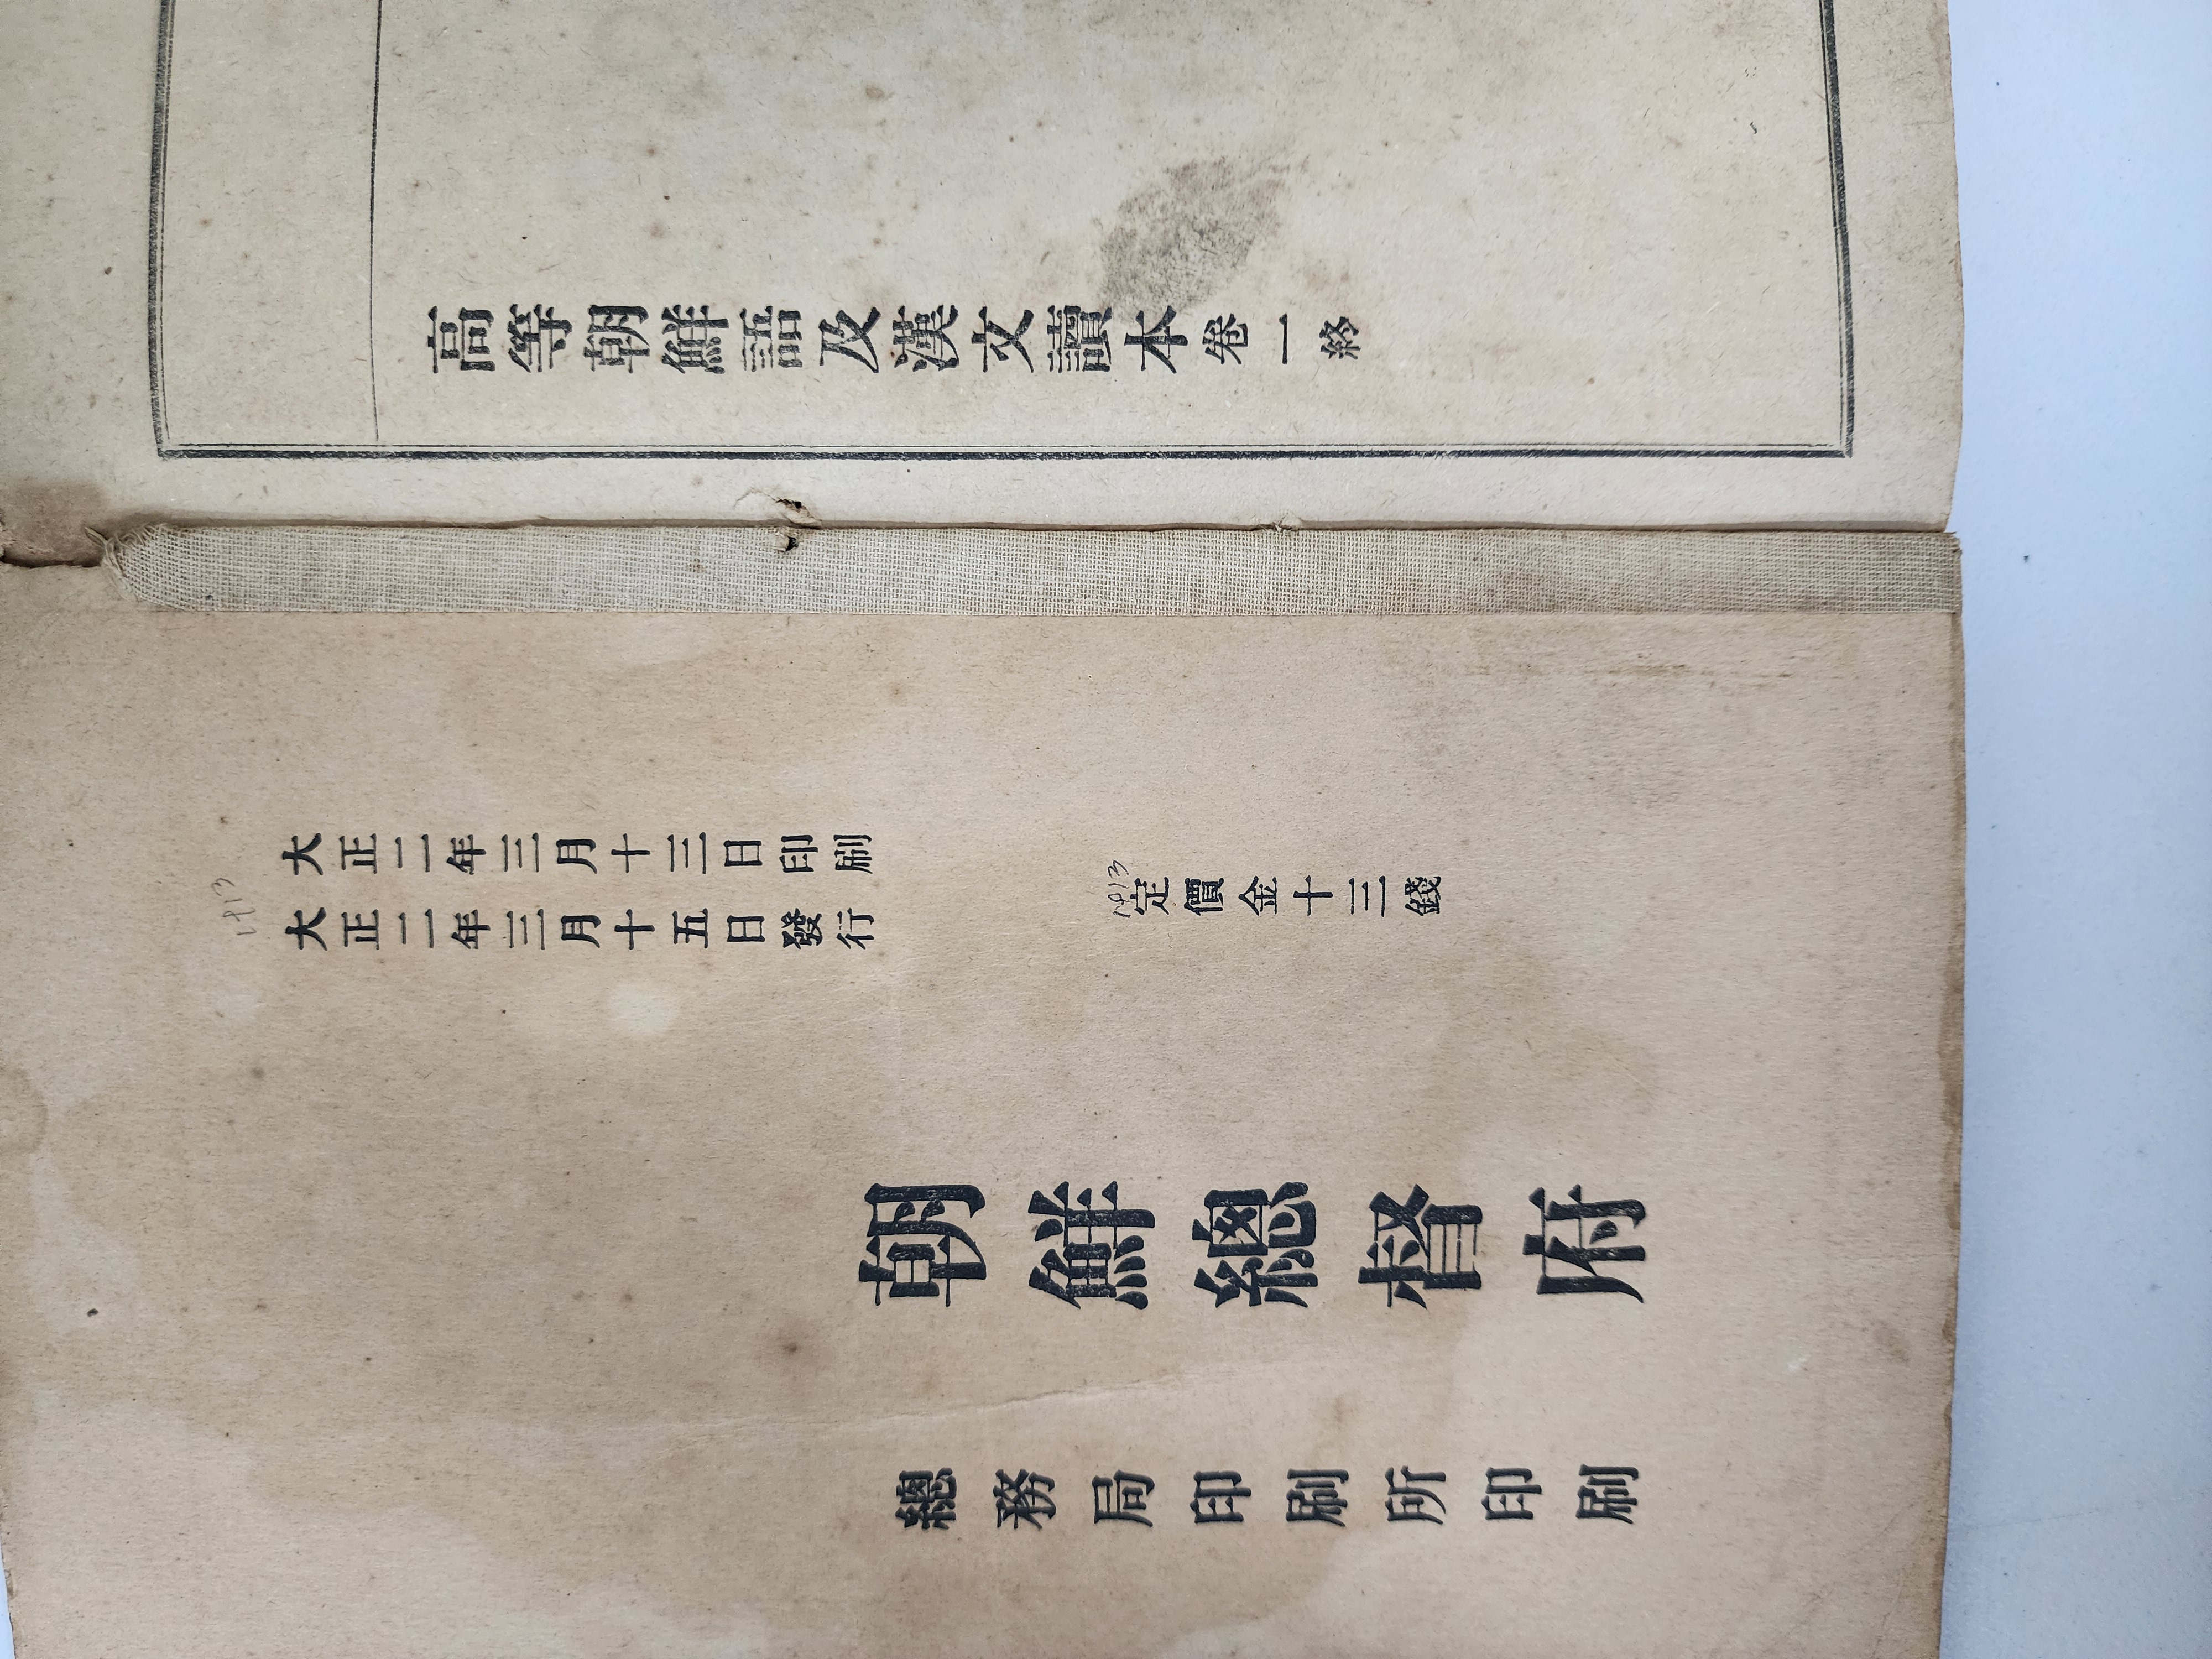 高等朝鮮語及漢文讀本卷一終
大正二年三月十三日印刷
大正二年三月十五日發行
1913
1913
定價金十三錢
朝鮮總督府
總務局印刷所印刷